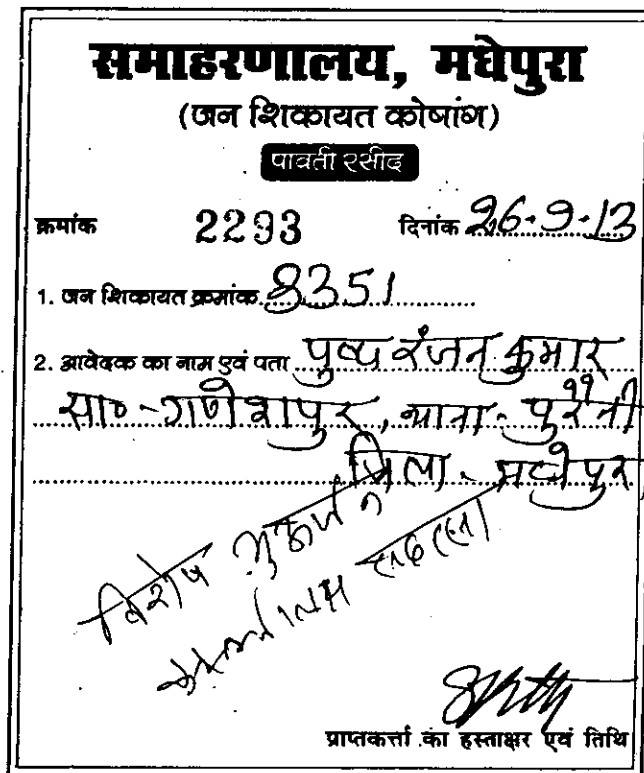 समाहरणालय, मधेपुरा
(जन शिकायत कोषांग)
पावती रसीद
क्रमांक 2293 दिनांक 26-9-13
1. जन शिकायत क्रमांक 8351
2. आवेदक का नाम एवं पता पुष्प रंजन कुमार
सा०-गणेशपुर, थाना-पुरैनी
जिला-मधेपुर
विशेष
प्राप्तकर्त्ता का हस्ताक्षर एवं तिथि